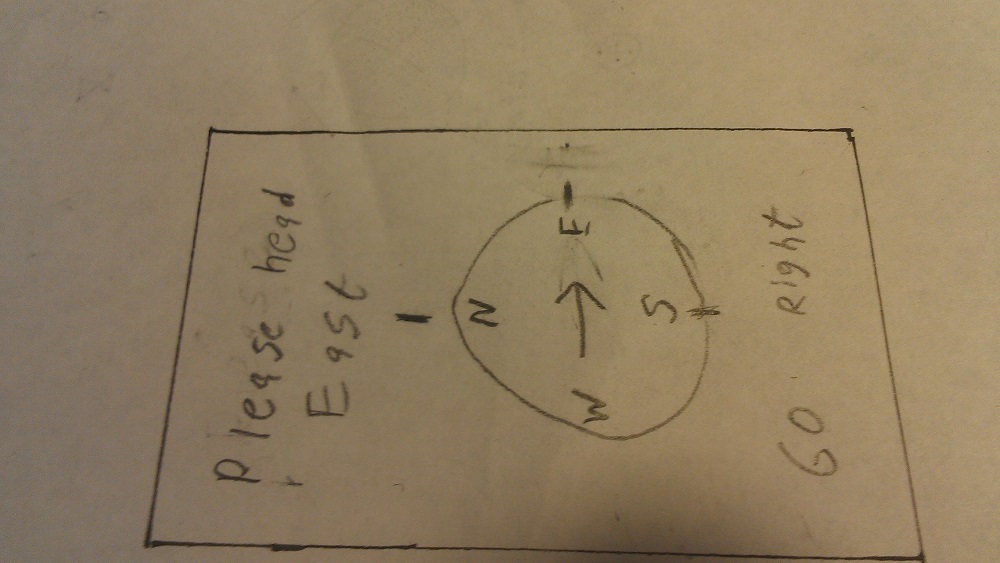 Please head
East
N
W E
S
GO Right